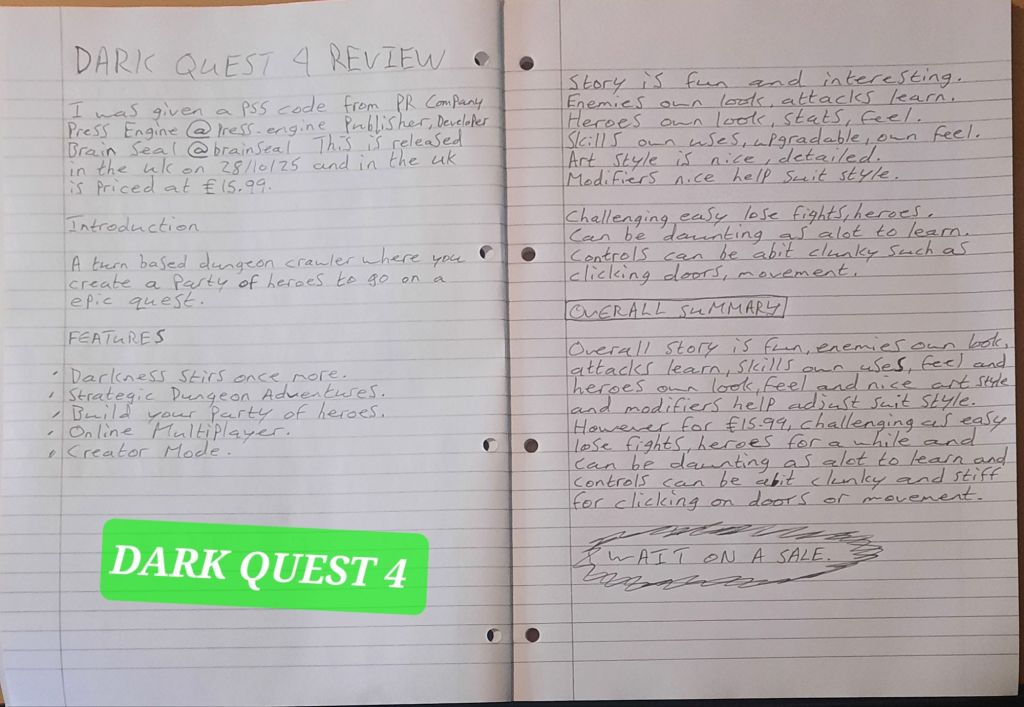 DARK QUEST 4 REVIEW
I was given a PS5 code from PR Company
Press Engine @Press.engine Publisher, Developer
Brain Seal @brainseal This is released
in the uk on 28/10/25 and in the uk
is Priced at £15.99.
Introduction
A turn based dungeon crawler where you
create a Party of heroes to go on a
epic quest.
FEATURES
• Darkness Stirs once more.
• Strategic Dungeon Adventures.
• Build your Party of heroes.
• Online Multiplayer.
• Creator Mode.
DARK QUEST 4
Story is fun and interesting.
Enemies own look, attacks learn.
Heroes own look, stats, feel.
Skills own uses, upgradable, own feel.
Art Style is nice, detailed.
Modifiers nice help suit style.
Challenging easy lose fights, heroes.
Can be daunting as alot to learn.
Controls can be abit clunky such as
clicking doors, movement.
OVERALL SUMMARY
Overall Story is fun, enemies own look,
attacks learn, skills own uses, feel and
heroes own look, feel and nice art style
and modifiers help adjust suit style.
However for £15.99, challenging as easy
lose fights, heroes for a while and
can be daunting as alot to learn and
controls can be abit clunky and stiff
for clicking on doors or movement.
WAIT ON A SALE.